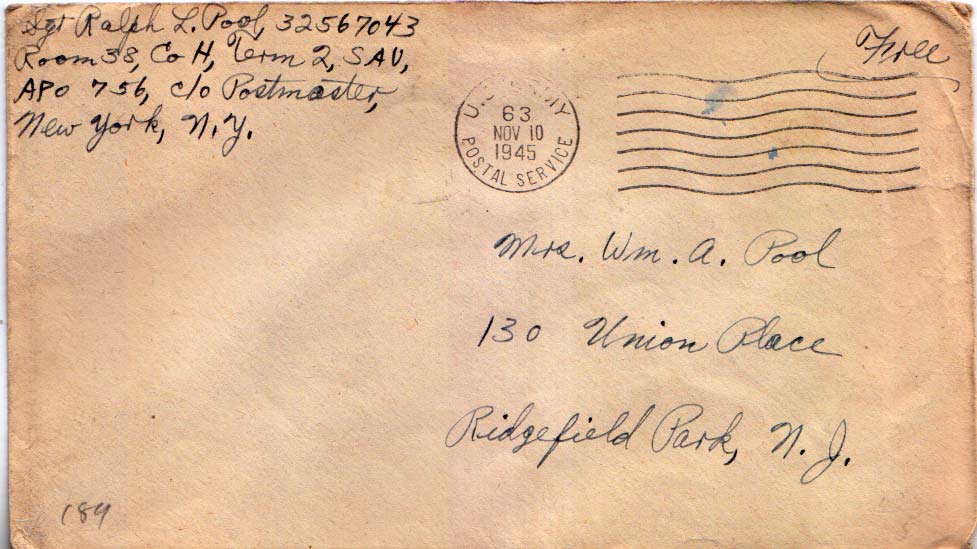 Sgt Ralph L. Pool, 32567043
Room 38, Co H, Term 2, SAU,
APO 756, c/o Postmaster,
New York, N.Y.
Free
U.S. ARMY
63
NOV 10
1945
POSTAL SERVICE
Mrs. Wm. A. Pool
130 Union Place
Ridgefield Park, N. J.
184